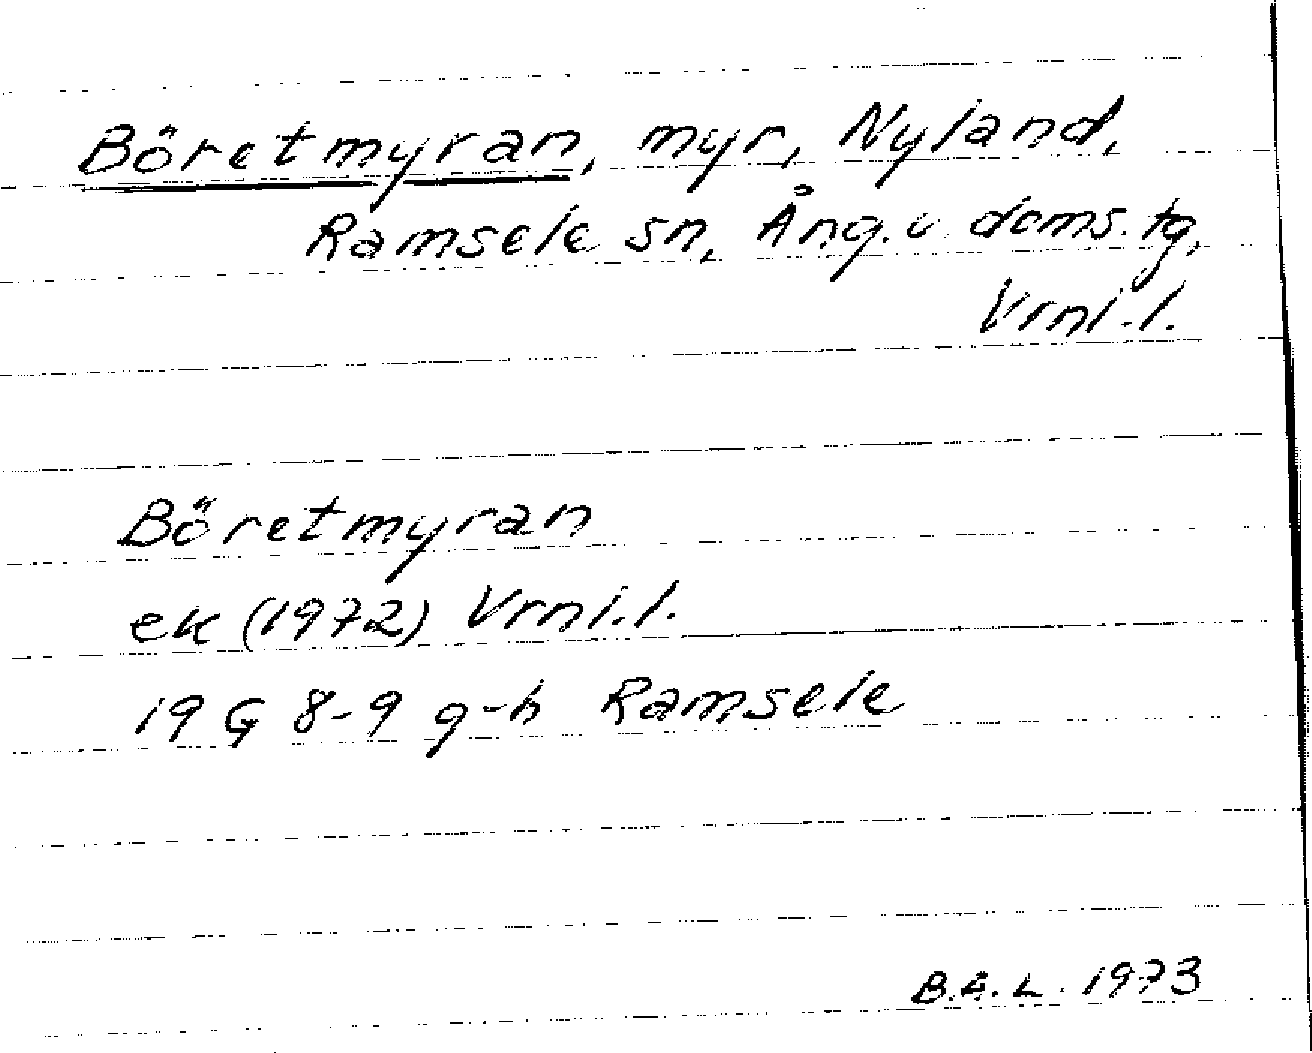 Böretmyran, myr, Nyland,
Ramsele sn, Ång. v. doms. tg,
Vrnl. l.
Böretmyran
ek (1972) Vrnl. l.
19 G 8-9 g-h Ramsele
B.A.L. 1973